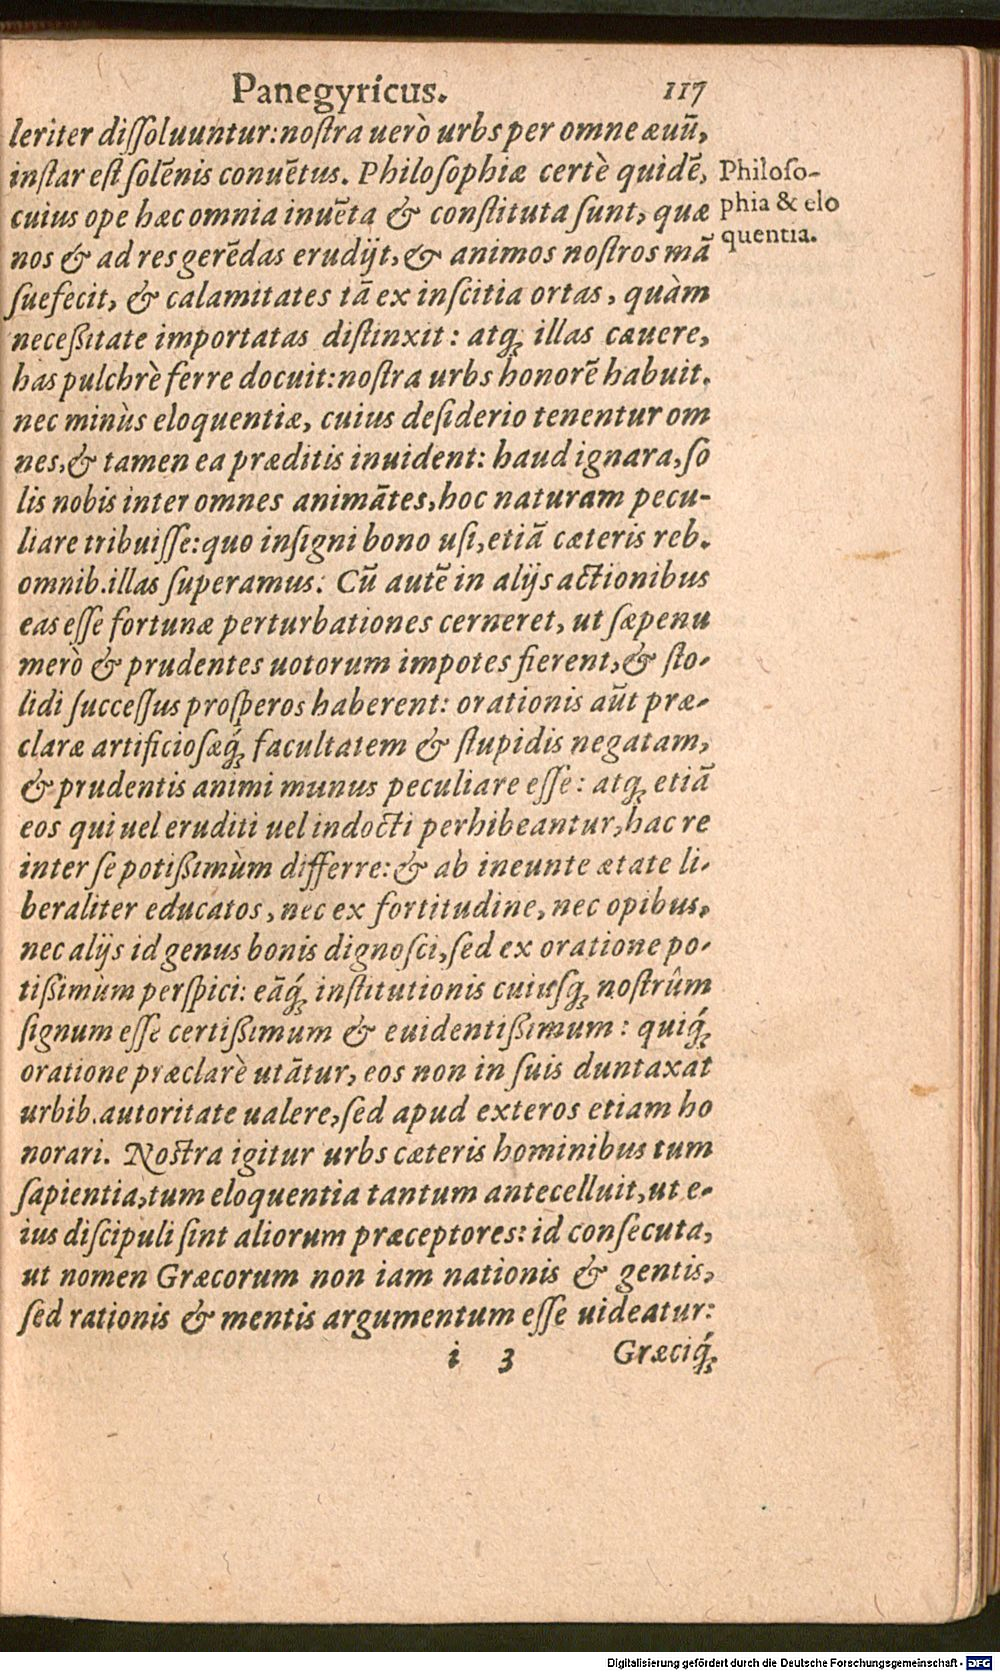 Panegyricus. 117
leriter diſſoluuntur: noſtra uerò urbs per omne æuũ,
inſtar eſt ſolẽnis conuẽtus. Philoſophiæ certè quidẽ,
Philoſo-
cuius ope hæc omnia inuẽta & conſtituta ſunt, quæ
phia & elo
nos & ad res gerẽdas erudijt, & animos noſtros mã
quentia.
ſuefecit, & calamitates tã ex inſcitia ortas, quàm
neceßitate importatas diſtinxit: atq; illas cauere,
has pulchrè ferre docuit: noſtra urbs honorẽ habuit.
nec minùs eloquentiæ, cuius deſiderio tenentur om
nes, & tamen ea præditis inuident: haud ignara, ſo
lis nobis inter omnes animãtes, hoc naturam pecu-
liare tribuiſſe: quo inſigni bono uſi, etiã cæteris reb.
omnib. illas ſuperamus. Cũ autẽ in alijs actionibus
eas eſſe fortunæ perturbationes cerneret, ut ſæpenu
merò & prudentes uotorum impotes fierent, & ſto-
lidi ſucceſſus proſperos haberent: orationis aũt præ-
claræ artificioſæq́; facultatem & ſtupidis negatam,
& prudentis animi munus peculiare eſſe: atq; etiã
eos qui uel eruditi uel indocti perhibeantur, hac re
inter ſe potißimùm differre: & ab ineunte ætate li-
beraliter educatos, nec ex fortitudine, nec opibus,
nec alijs id genus bonis dignoſci, ſed ex oratione po-
tißimùm perſpici: eãq́; inſtitutionis cuiuſq; noſtrûm
ſignum eſſe certißimum & euidentißimum: quiq́;
oratione præclarè utãtur, eos non in ſuis duntaxat
urbib. autoritate ualere, ſed apud exteros etiam ho
norari. Noſtra igitur urbs cæteris hominibus tum
ſapientia, tum eloquentia tantum antecelluit, ut e-
ius diſcipuli ſint aliorum præceptores: id conſecuta,
ut nomen Græcorum non iam nationis & gentis,
ſed rationis & mentis argumentum eſſe uideatur:
i 3 Græciq́;
Digitalisierung gefördert durch die Deutsche Forschungsgemeinschaft - DFG